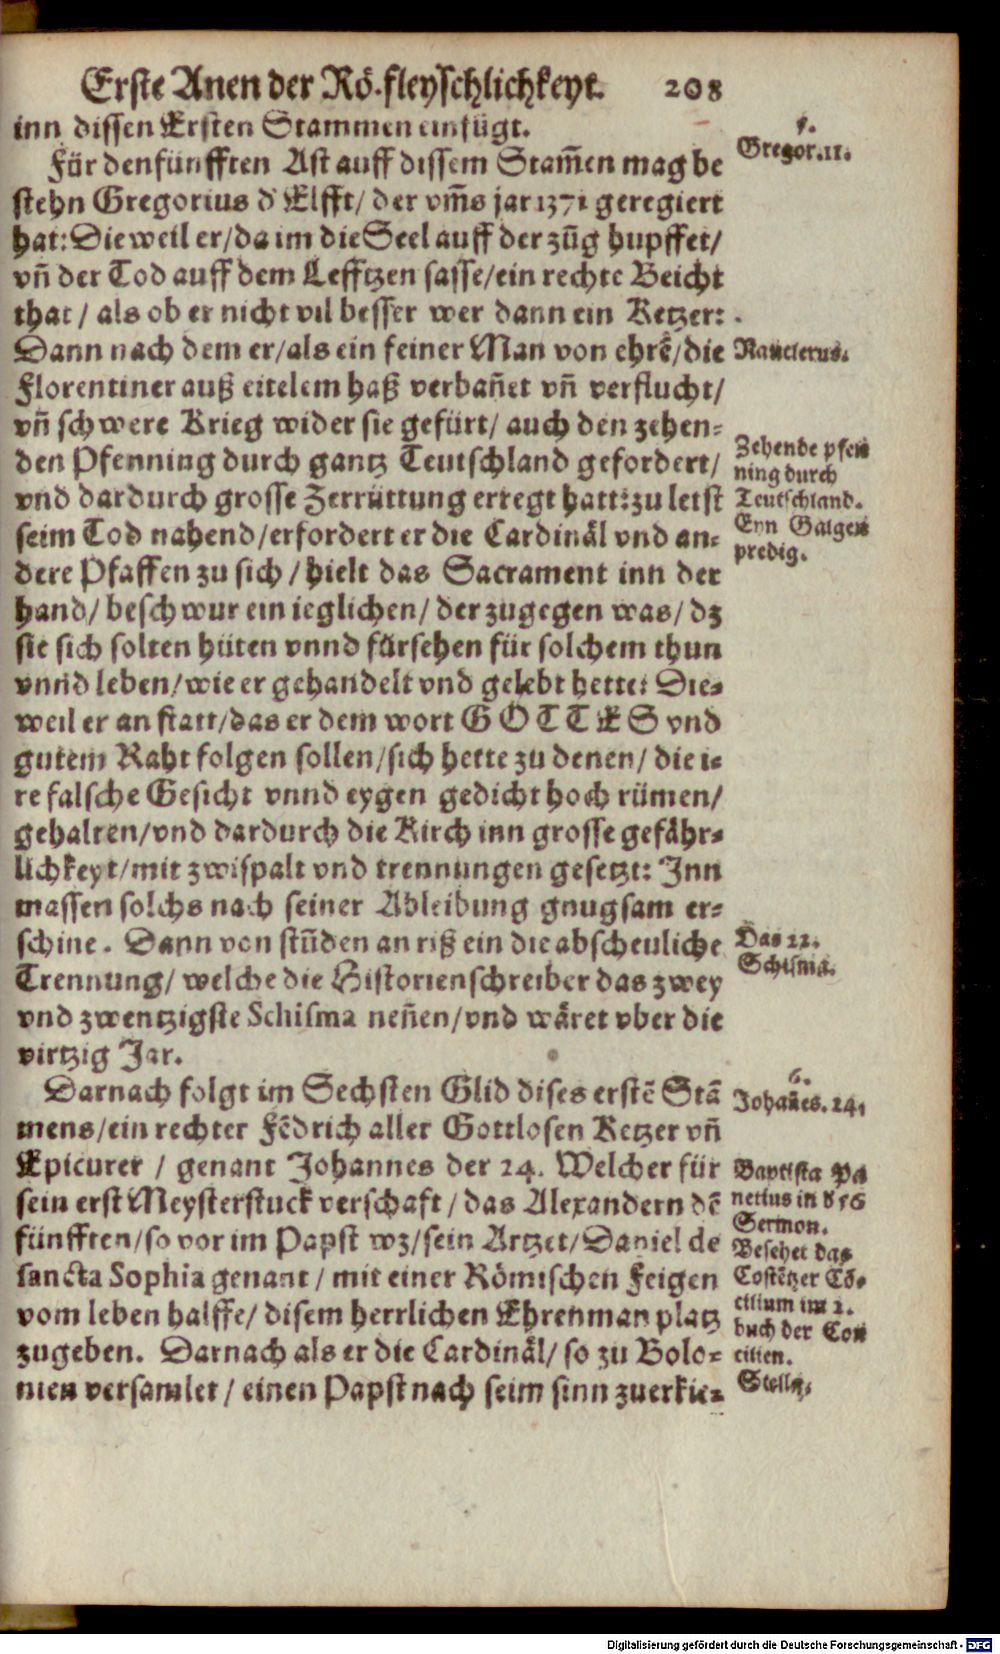 Erste Anen der Rö. fleyschlichkeyt. 208
inn dissen Ersten Stammen einfügt.
Für den fünfften Ast auff dissem Stam̄en mag be
stehn Gregorius d' Elfft/ der vm̄s jar 1371 geregiert
hat: Dieweil er/ da im die Seel auff der zūg hupffet/
vn̄ der Tod auff dem Lefftzen sasse/ ein rechte Beicht
that/ als ob er nicht vil besser wer dann ein Ketzer:
Dann nach dem er/ als ein feiner Man von ehrē/ die
Florentiner auß eitelem haß verban̄et vn̄ verflucht/
vn̄ schwere Krieg wider sie gefürt/ auch den zehen-
den Pfenning durch gantz Teutschland gefordert/
vnd dardurch grosse Zerrüttung erregt hatt: zu letst
seim Tod nahend/ erfordert er die Cardinäl vnd an-
dere Pfaffen zu sich/ hielt das Sacrament inn der
hand/ beschwur ein ieglichen/ der zugegen was/ dz
sie sich solten hüten vnnd fürsehen für solchem thun
vnnd leben/ wie er gehandelt vnd gelebt hette: Die-
weil er an statt/ das er dem wort GOTTES vnd
gutem Raht folgen sollen/ sich hette zu denen/ die i-
re falsche Gesicht vnnd eygen gedicht hoch rümen/
gehalten/ vnd dardurch die Kirch inn grosse gefähr-
lichkeyt/ mit zwispalt vnd trennungen gesetzt: Inn
massen solchs nach seiner Ableibung gnugsam er-
schine. Dann von stūden an riß ein die abscheuliche
Trennung/ welche die Historienschreiber das zwey
vnd zwentzigste Schisma nen̄en/ vnd wäret vber die
virtzig Jar.
Darnach folgt im Sechsten Glid dises erstē Stā
mens/ ein rechter Fēdrich aller Gottlosen Ketzer vn̄
Epicurer/ genant Johannes der 24. Welcher für
sein erst Meysterstuck verschaft/ das Alexandern dē
fünfften/ so vor im Papst wz/ sein Artzet/ Daniel de
sancta Sophia genant/ mit einer Römischen Feigen
vom leben halffe/ disem herrlichen Ehrenman platz
zugeben. Darnach als er die Cardinäl/ so zu Bolo-
nien versamlet/ einen Papst nach seim sinn zuerkie-
5.
Gregor. 11.
Nauclerus.
Zehende pfen
ning durch
Teutschland.
Eyn Galgen
predig.
Das 22.
Schisma.
6.
Johañes. 24.
Baptista Pa
netius in
Sermon.
Besehet das
Costētzer Cō-
cilium im 2.
buch der Con
cilien.
Stella.
Digitalisierung gefördert durch die Deutsche Forschungsgemeinschaft - DFG